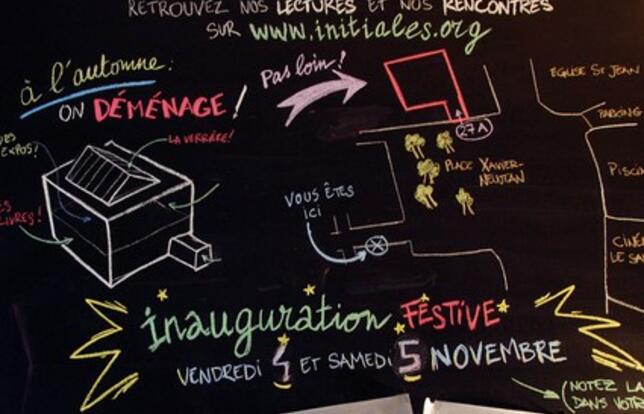 RETROUVEZ NOS LECTURES ET NOS RENCONTRES
SUR www.initiales.org
à l'automne:
ON DÉMÉNAGE!
Pas loin!
ÉGLISE St JEAN
PARKING
27A
LA VERRIÈRE!
EXPOS!
PLACE XAVIER-
NEUJEAN
PISCI
VOUS ÊTES
ICI
LIVRES!
CINÉ
LE SA
inauguration FESTIVE
VENDREDI 4 ET SAMEDI 5 NOVEMBRE
(NOTEZ LA
DANS VOTR